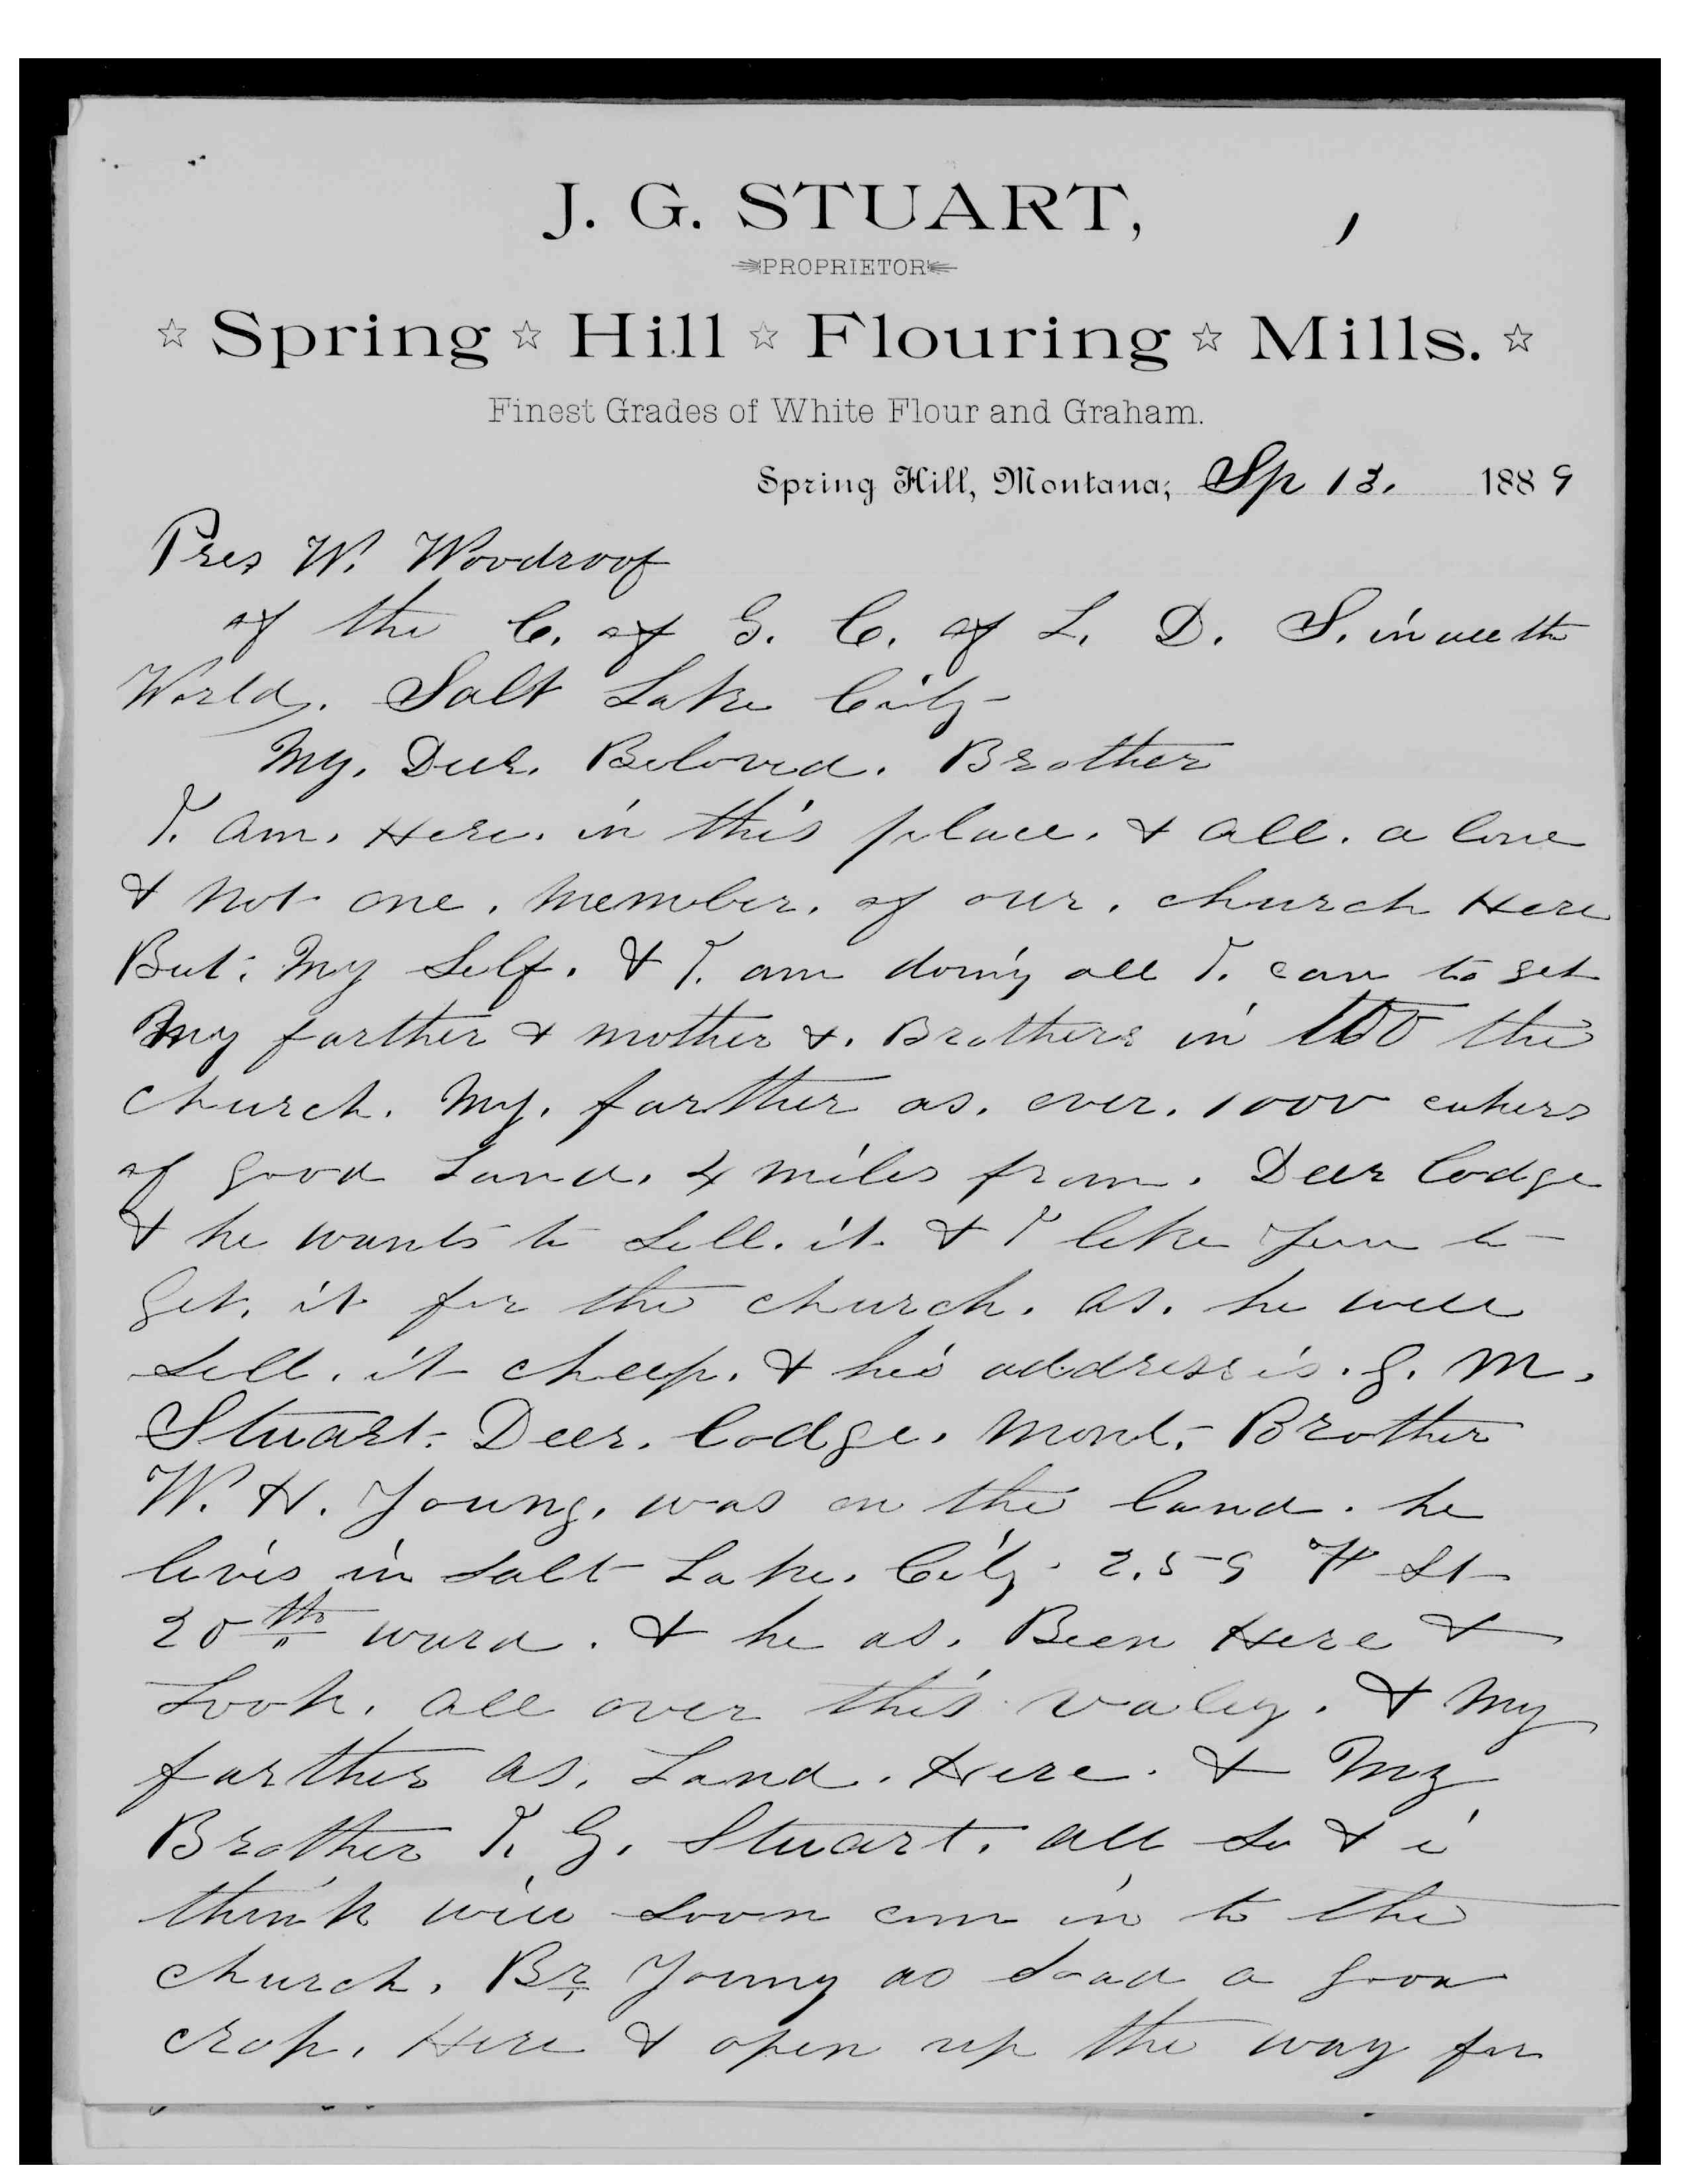 J. G. STUART,
PROPRIETOR
Spring Hill Flouring Mills.
Finest Grades of White Flour and Graham.
Spring Hill, Montana; Sp 13. 1889
Pres W. Woodroof
of the C. of G. C. of L. D. S. in all the
World. Salt Lake City
My. Deer. Beloved. Brother
I. am. Here. in this place. & all. a lone
& not one. member. of our. church Here
But: My Self. & I. am doing all I. can to get
my farther & mother &. Brothers in too the
church. My. farther as. over. 1000 eakers
of good Land. 4 miles from. Deer Lodge
& he wants to sell. it & I like you to
get. it for the church. as. he will
sell. it cheep. & his address is. G. M.
Stuart. Deer. Lodge. Mont. Brother
W. H. Young. was on the land. he
livis in Salt Lake. City. 2.59 H St
20th ward. & he as. Been Here &
Look. all over this valey. & My
farther as. Land. Here. & My
Brother T. G. Stuart. all so & i
think will soon com in to the
church. Br Young as a good
crop. Here & open up the way for